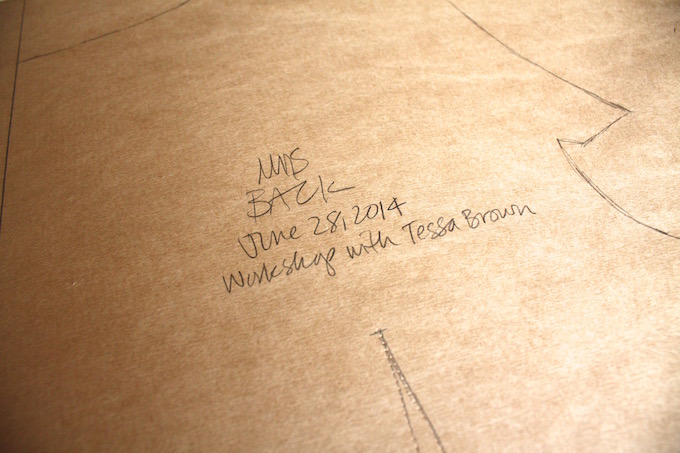 BACK
June 28, 2014
Workshop with Tessa Brown